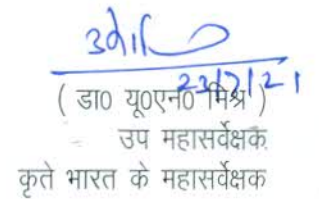 23/7/21
( डा० यू०एन० मिश्र )
उप महासर्वेक्षक
कृते भारत के महासर्वेक्षक